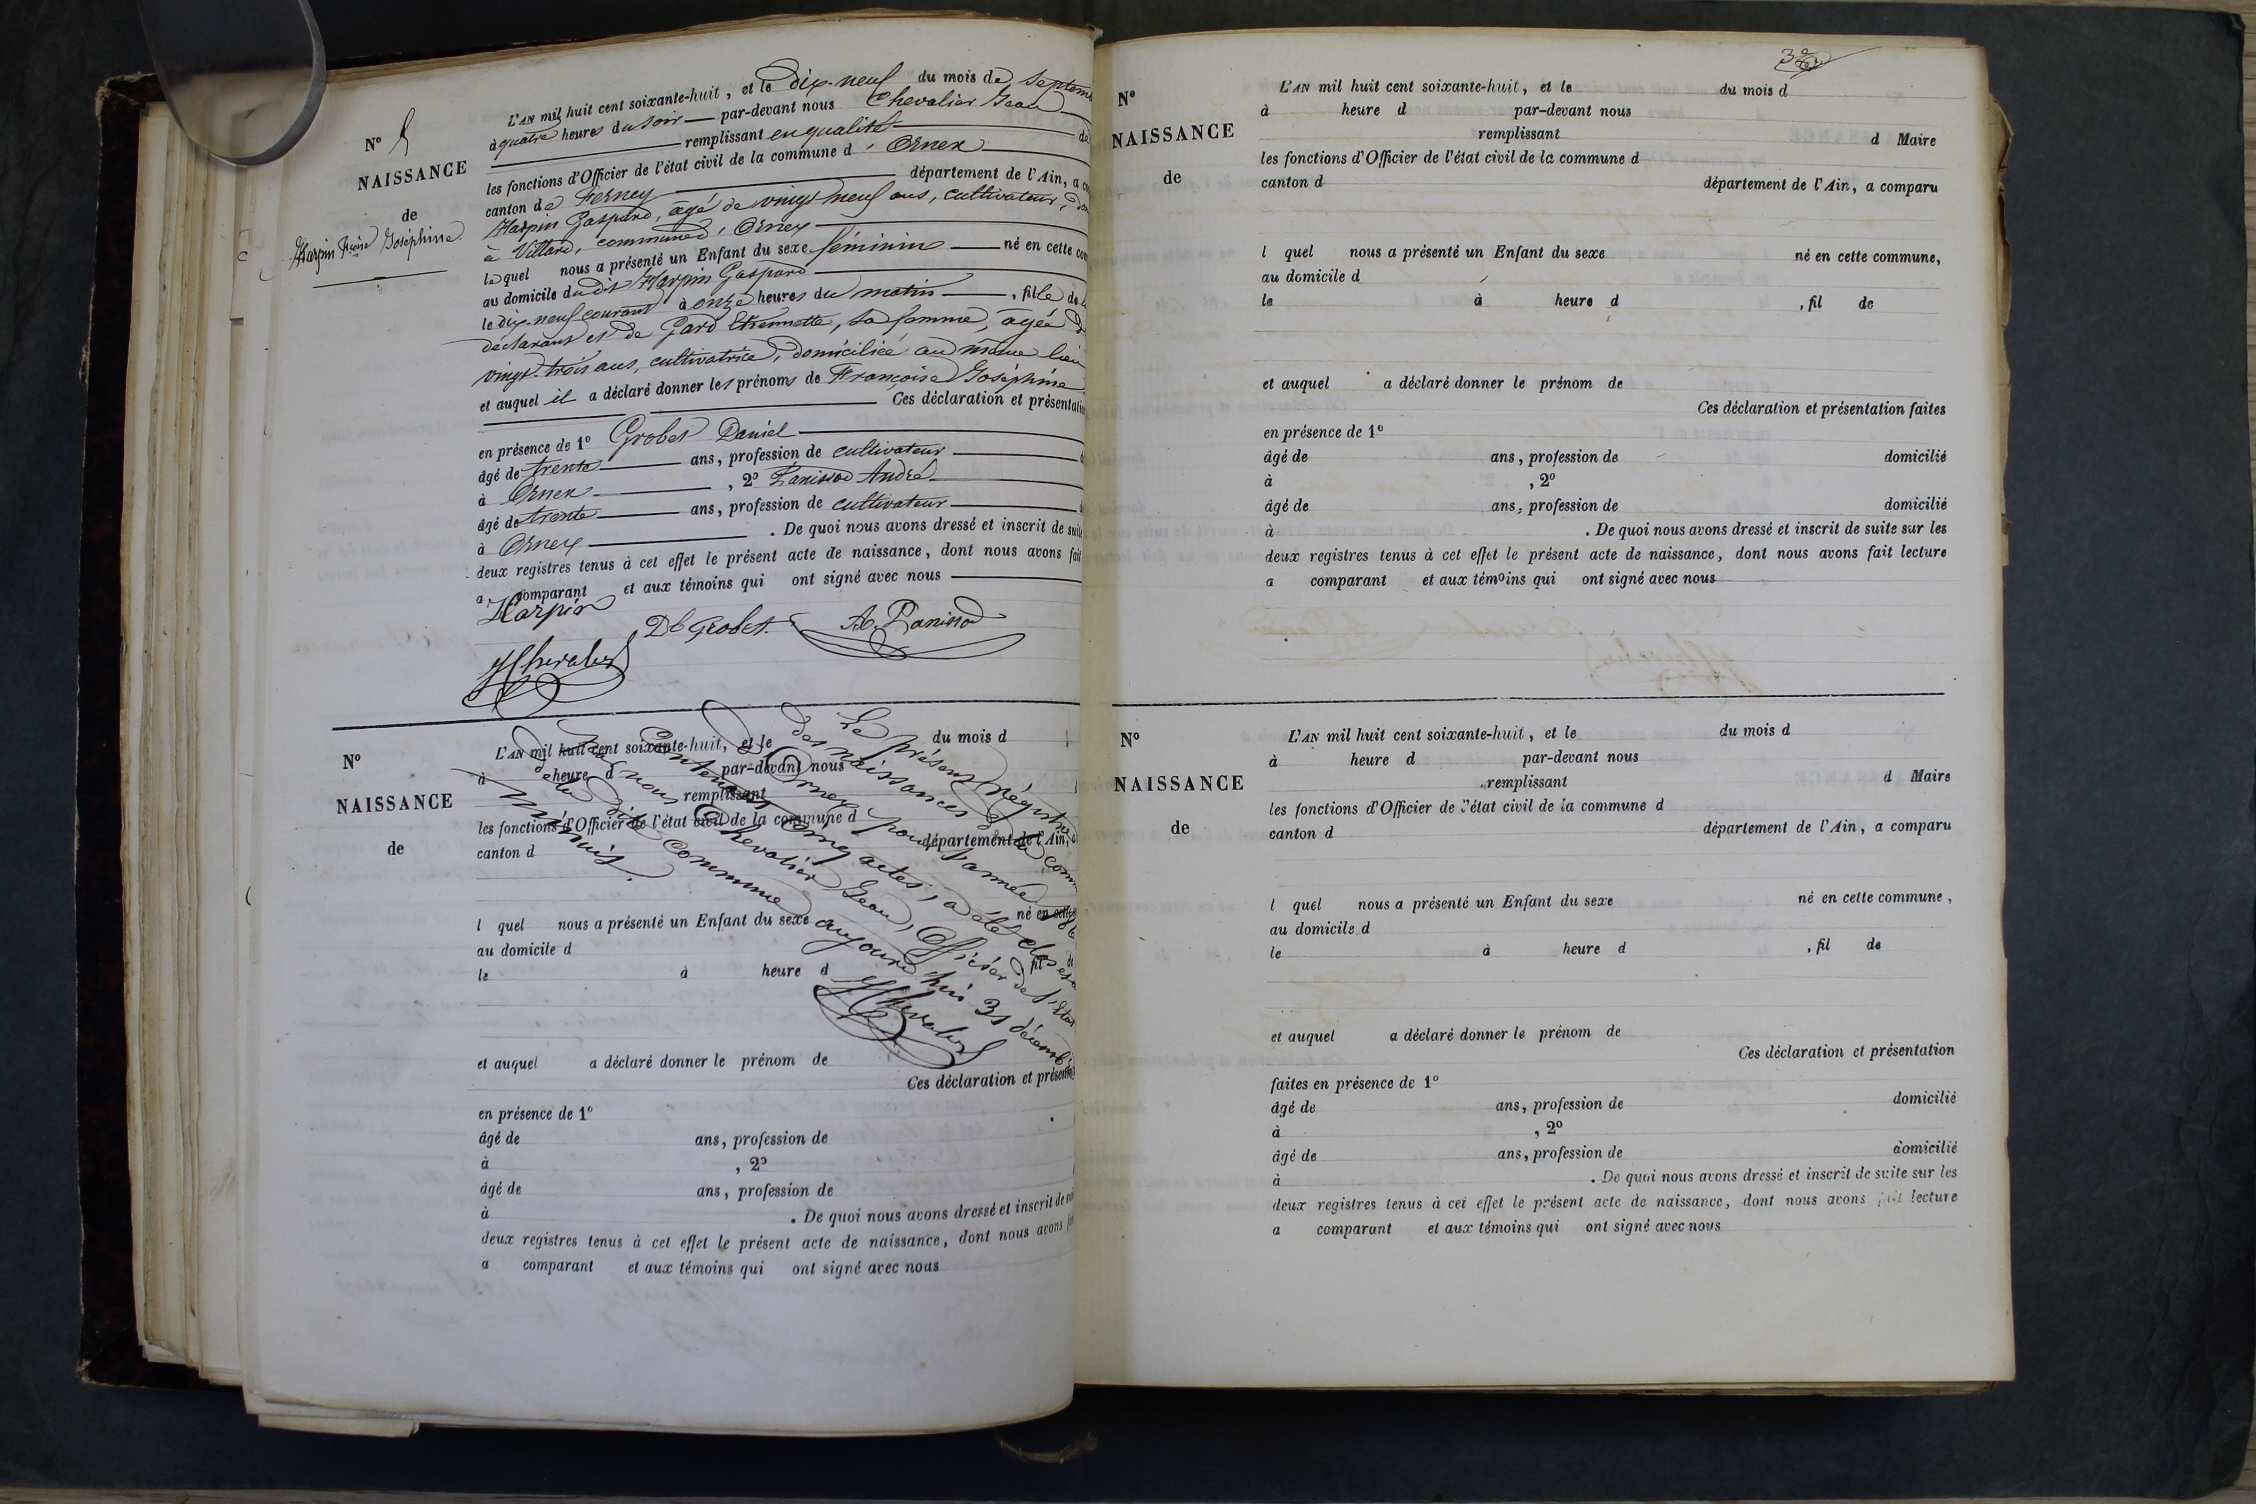 Nº 5
NAISSANCE
de
Harpin Fçoise Joséphine
L'AN mil huit cent soixante-huit, et le dix-neuf du mois de Septem
à quatre heures du soir par-devant nous Chevalier Jean
remplissant en qualité de
les fonctions d'Officier de l'état civil de la commune d'Ornex
canton de Ferney département de l'Ain, a co
Harpin Gaspard, âgé de vingt neuf ans, cultivateur, dom
à Villard, commune d'Ornex
lequel nous a présenté un Enfant du sexe féminin né en cette com
au domicile dudit Harpin Gaspard
le dix-neuf courant à onze heures du matin, fille de
déclarant et de Gard Etiennette, sa femme, âgée de
vingt-trois ans, cultivatrice, domiciliée au même lieu
et auquel il a déclaré donner les prénoms de Françoise Joséphine
Ces déclaration et présentatio
en présence de 1º Grobet Daniel
âgé de trente ans, profession de cultivateur
à Ornex, 2º Panissod André
âgé de trente ans, profession de cultivateur
à Ornex. De quoi nous avons dressé et inscrit de suite
deux registres tenus à cet effet le présent acte de naissance, dont nous avons fait
a comparant et aux témoins qui ont signé avec nous
Harpin
Dl Grobet. A. Panissod
JChevalier
Nº
NAISSANCE
de
L'AN mil huit cent soixante-huit, et le du mois d
à heure d par-devant nous
remplissant
les fonctions d'Officier de l'état civil de la commune d
canton d département de l'Ain, a
l quel nous a présenté un Enfant du sexe né en cette
au domicile d
le à heure d fil de
et auquel a déclaré donner le prénom de
Ces déclaration et présenta
en présence de 1º
âgé de ans, profession de
à , 2º
âgé de ans, profession de
à . De quoi nous avons dressé et inscrit de sui
deux registres tenus à cet effet le présent acte de naissance, dont nous avons fa
a comparant et aux témoins qui ont signé avec nous
Le présent régistre
des naissances de la comm
d'Ornex, pour l'année 1868
Contenant cinq actes, a été clos et a
par nous Chevalier Jean, Officier de l'état
de la dite Commune aujourd'hui 31 décemb
Minuit.
JChevalier
3e
Nº
NAISSANCE
de
L'AN mil huit cent soixante-huit, et le du mois d
à heure d par-devant nous
remplissant d Maire
les fonctions d'Officier de l'état civil de la commune d
canton d département de l'Ain, a comparu
l quel nous a présenté un Enfant du sexe né en cette commune,
au domicile d
le à heure d , fil de
et auquel a déclaré donner le prénom de
Ces déclaration et présentation faites
en présence de 1º
âgé de ans, profession de domicilié
à , 2º
âgé de ans, profession de domicilié
à . De quoi nous avons dressé et inscrit de suite sur les
deux registres tenus à cet effet le présent acte de naissance, dont nous avons fait lecture
a comparant et aux témoins qui ont signé avec nous
Nº
NAISSANCE
de
L'AN mil huit cent soixante-huit, et le du mois d
à heure d par-devant nous
remplissant d Maire
les fonctions d'Officier de l'état civil de la commune d
canton d département de l'Ain, a comparu
l quel nous a présenté un Enfant du sexe né en cette commune,
au domicile d
le à heure d , fil de
et auquel a déclaré donner le prénom de
Ces déclaration et présentation
faites en présence de 1º
âgé de ans, profession de domicilié
à , 2º
âgé de ans, profession de domicilié
à . De quoi nous avons dressé et inscrit de suite sur les
deux registres tenus à cet effet le présent acte de naissance, dont nous avons fait lecture
a comparant et aux témoins qui ont signé avec nous